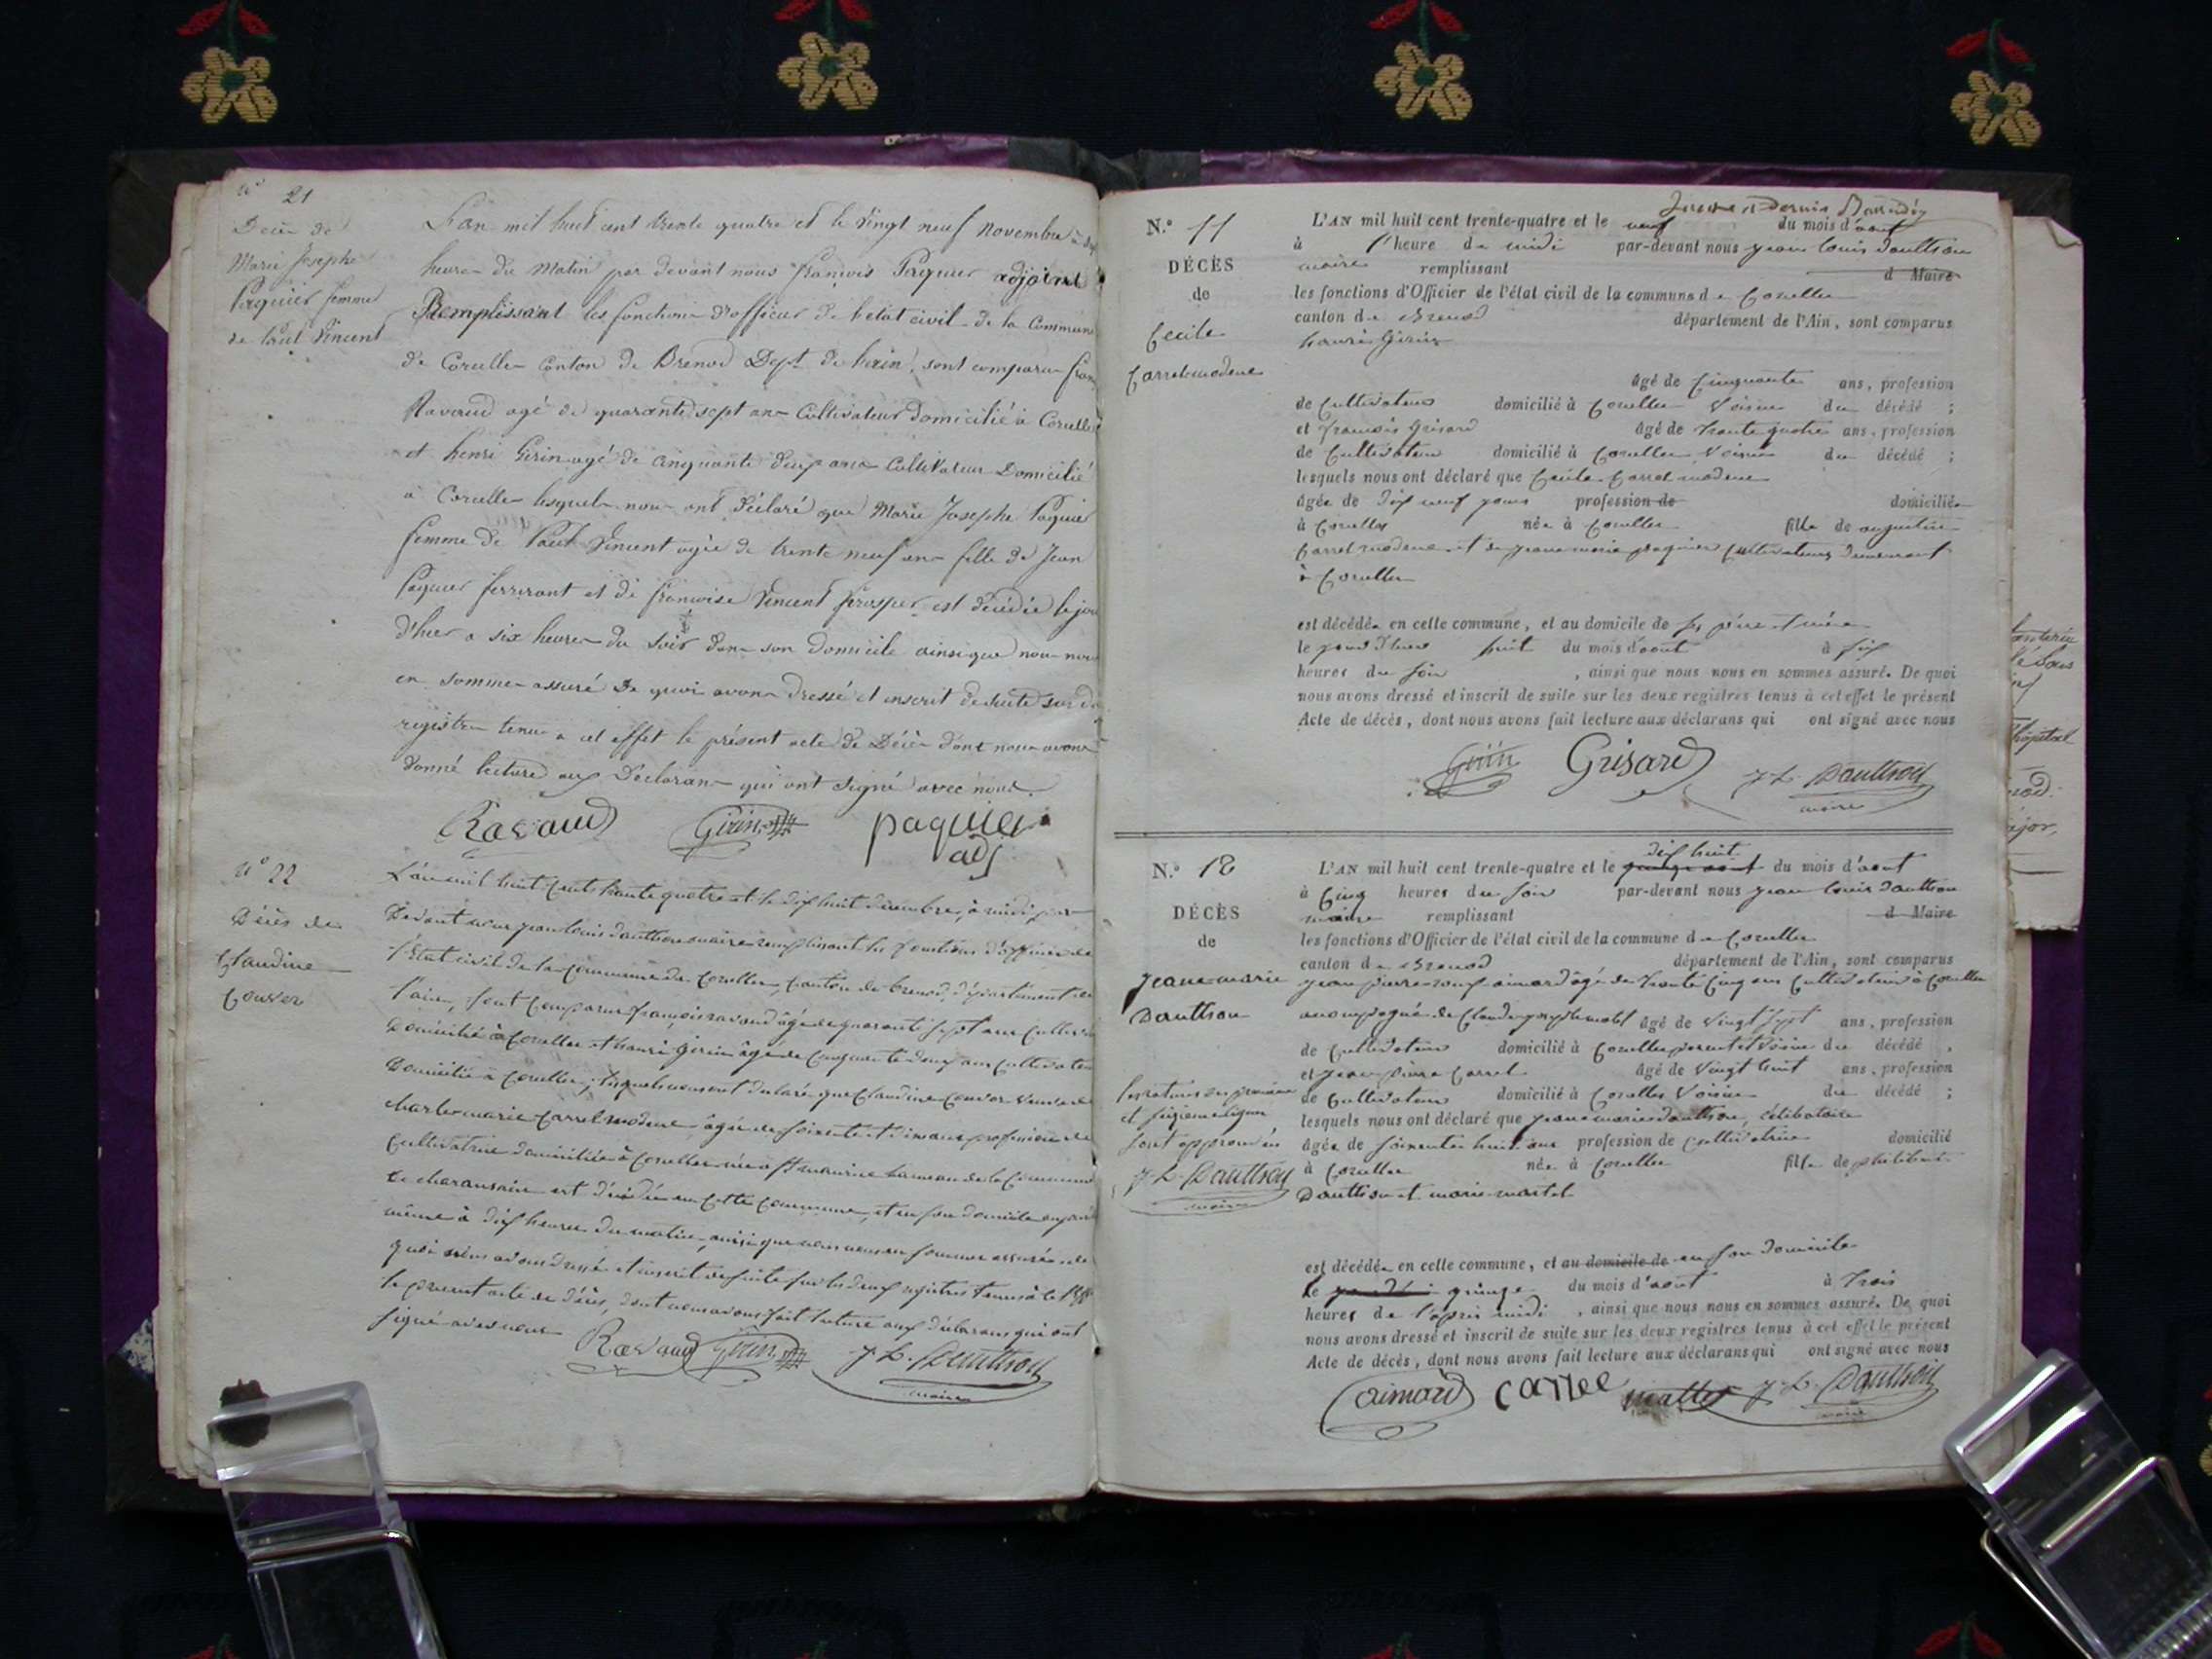 n° 21
Décès de
Marie Josephe
Paquier femme
de Paul Vincent
L'an mil huit cent trente quatre et le vingt neuf novembre à
heures du matin par devant nous françois Paquier adjoint
Remplissant les fonctions d'officier de l'etat civil de la Commune
de Corcelles Canton de Brenod Dept de l'ain, sont comparus
Ravaud agé de quarante sept ans Cultivateur domicilié à Corcelles
et henri Girin agé de cinquante deux ans Cultivateur Domicilié
à Corcelles lesquels nous ont déclaré que Marie Josephe Paquier
femme de Paul Vincent agée de trente neuf ans fille de Jean
Paquier ferrirant et de françoise Vincent prosper est décédée le jour
d'hier a six heures du soir dans son domicile ainsi que nous nous
en sommes assuré De quoi avons dressé et inscrit de suite sur
registres tenus a cet effet le présent acte de Décès dont nous avons
donné lecture aux Déclarans qui ont signé avec nous.
Ravaud Girin paquier
adj
n° 22
Décès de
Claudine
Couvor
L'an mil huit cents trente quatre et le dix huit décembre, à midi, par
Devant nous jean louis dauthion maire remplissant les fonctions d'officier de
l'état civil de la commune de Corcelles, canton de brenod, département de
l'ain, sont comparus françois ravaud âgé de quarante sept ans cultivateur
Domicilié à Corcelles et henri girin âgé de Cinquante deux ans cultivateur
Domicilié à Corcelles, lesquels nous ont déclaré que Claudine Couvor veuve de
charles marie Carrel modeme âgée de soixante et ans profession de
Cultivatrice domiciliée à Corcelles née a st maurice hameau de la Commune
de charansain est décédée en cette commune, et en son domicile
même à dix heures du matin, ainsi que nous nous en sommes assurés de
quoi nous avons dressé et inscrit de suite sur les deux registres tenus à cet effet
le présent acte de décès, dont nous avons fait lecture aux déclarans qui ont
signé avec nous
Ravaud Girin J. L. Dauthion
maire
N.° 11
DÉCÈS
de
Cecile
Carrel modeme
L'AN mil huit cent trente-quatre et le neuf du mois d'aout
à l'heure de midi par-devant nous jean louis Dauthion
maire remplissant d Maire
les fonctions d'Officier de l'état civil de la commune de Corcelles
canton de Brenod département de l'Ain, sont comparus
henri Girin
âgé de Cinquante ans, profession
de Cultivateur domicilié à Corcelles Voisin du décédé ;
et françois Grisard âgé de trente quatre ans, profession
de Cultivateur domicilié à Corcelles Voisin du décédé ;
lesquels nous ont déclaré que Cecile Carrel modeme
âgée de dix neuf jours profession de domiciliée
à Corcelles née à Corcelles fille de augustin
Carrel modeme et de jeanne marie paquier Cultivateurs demeurant
à Corcelles
est décédée en cette commune, et au domicile de ses père et mère
le jour d'hier huit du mois d'aout à six
heures du soir , ainsi que nous nous en sommes assuré. De quoi
nous avons dressé et inscrit de suite sur les deux registres tenus à cet effet le présent
Acte de décès, dont nous avons fait lecture aux déclarans qui ont signé avec nous
Girin Grisard J. L. Dauthion
maire
N.° 12
DÉCÈS
de
Jeanne marie
Dauthion
dix huit
L'AN mil huit cent trente-quatre et le du mois d'aout
à Cinq heures du soir par-devant nous jean louis Dauthion
maire remplissant d Maire
les fonctions d'Officier de l'état civil de la commune de Corcelles
canton de Brenod département de l'Ain, sont comparus
jean pierre aimard âgé de trente Cinq ans Cultivateur à Corcelles
accompagné de Claude joseph âgé de Vingt sept ans, profession
de Cultivateur domicilié à Corcelles parent et Voisin du décédé ,
et jean pierre Carrel âgé de Vingt huit ans, profession
de Cultivateur domicilié à Corcelles Voisin du décédé ;
lesquels nous ont déclaré que jeanne marie dauthion, Célibataire
âgée de soixante huit ans profession de Cultivatrice domicilié
à Corcelles née à Corcelles fille de philibert
Dauthion et marie martel
les ratures des première
et sixieme lignes
sont approuvées
J. L. Dauthion
maire
est décédée en cette commune, et au domicile de en son Domicile
le quinze du mois d'aout à trois
heures de l'après midi , ainsi que nous nous en sommes assuré. De quoi
nous avons dressé et inscrit de suite sur les deux registres tenus à cet effet le présent
Acte de décès, dont nous avons fait lecture aux déclarans qui ont signé avec nous
aimard Carrel J. L. Dauthion
maire
hôpital